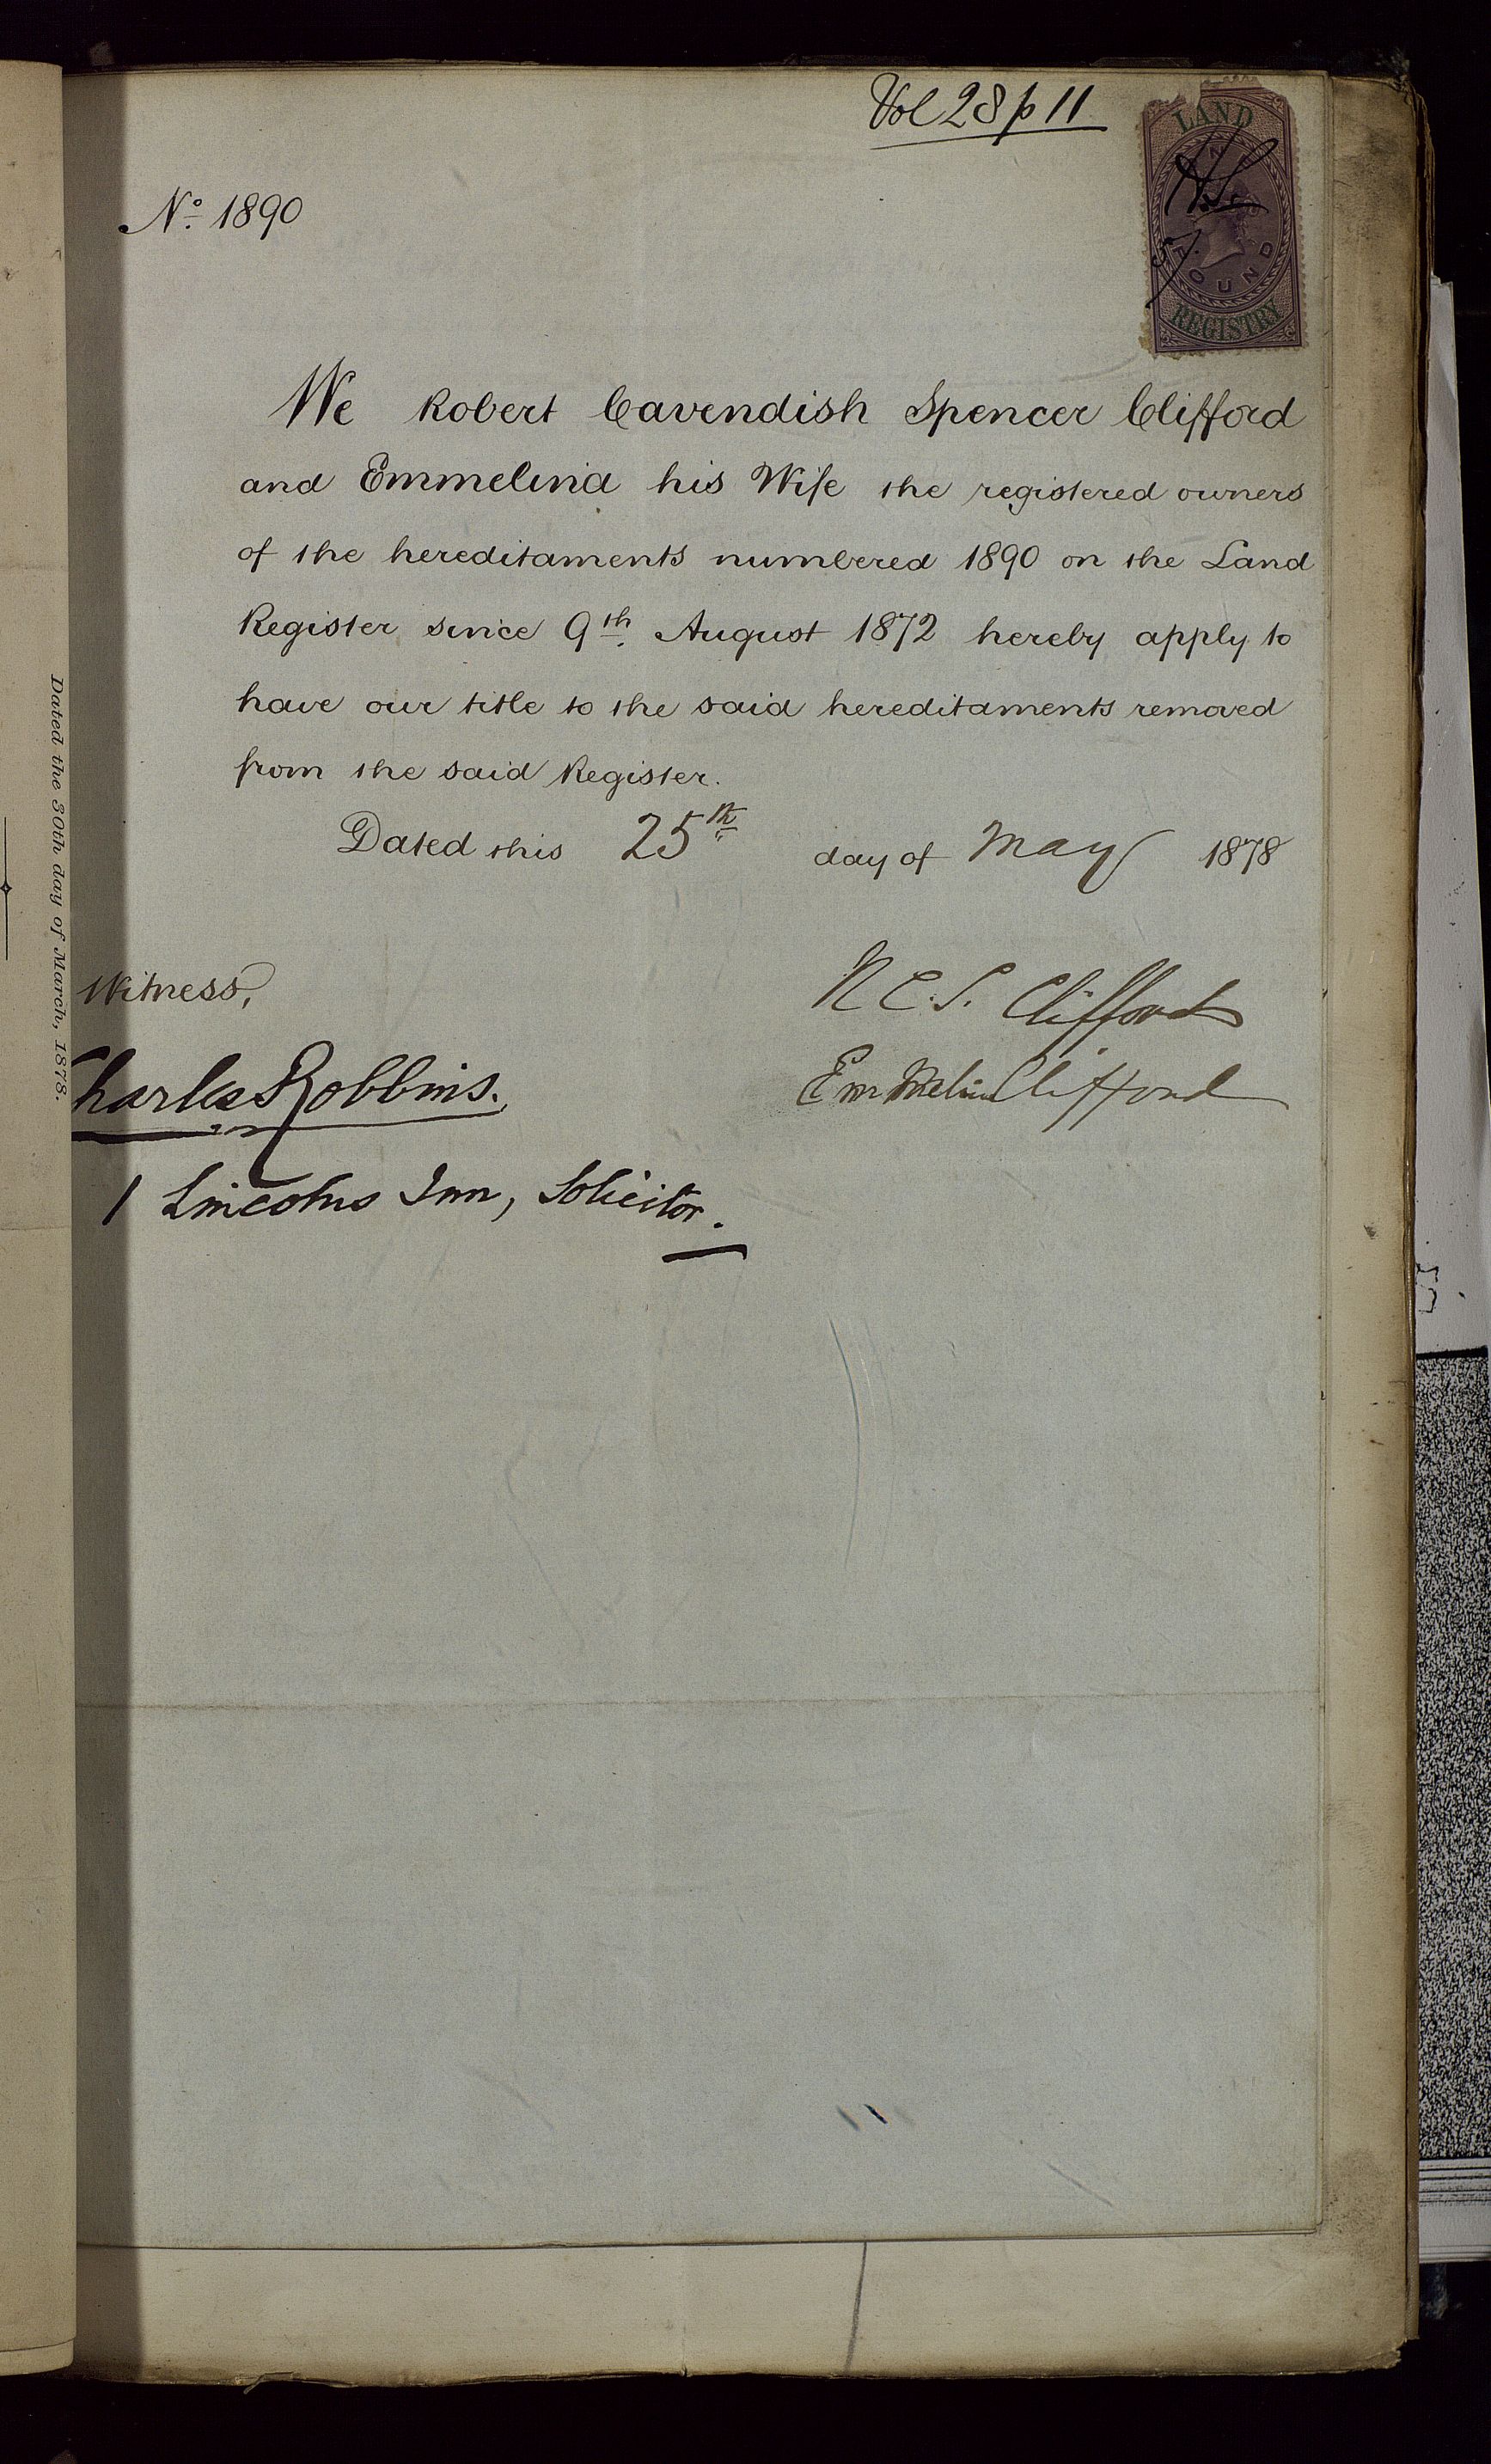 Vol 28 p 11
LAND
ONE
POUND
REGISTRY
No. 1890
We Robert Cavendish Spencer Clifford
and Emmelina his Wife the registered owners
of the hereditaments numbered 1890 on the Land
Register since 9th August 1872 hereby apply to
have our title to the said hereditaments removed
from the said Register.
Dated this 25th day of May 1878
Witness,
R C. S. Clifford
Charles Robbins.
Emmelina Clifford
1 Lincolns Inn, Solicitor.
Dated the 30th day of March, 1878.